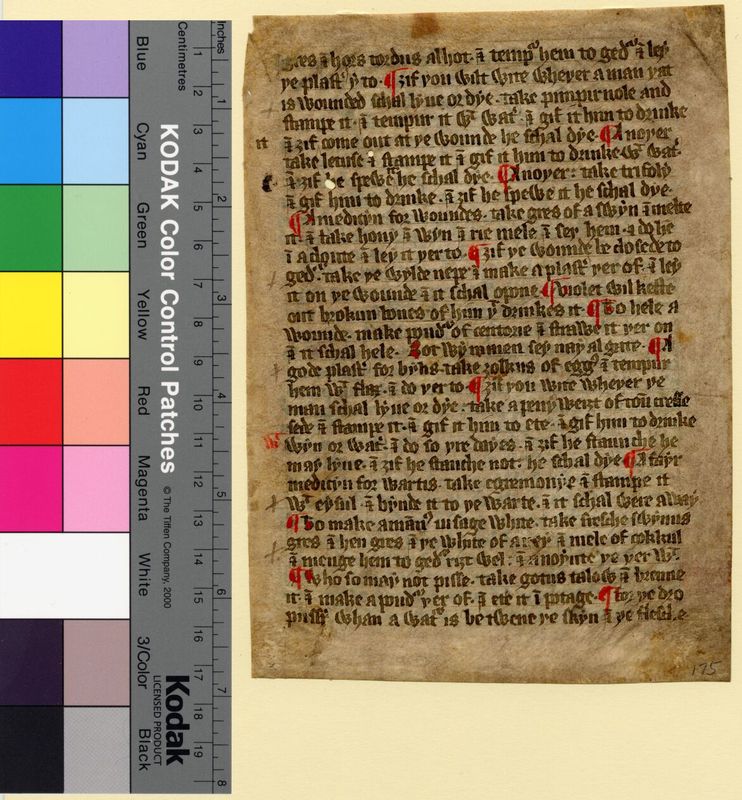 Blue
Cyan
Green
Yellow
Red
Magenta
White
3/Color
Black
Centimetres
Inches
KODAK Color Control Patches
© The Tiffen Company, 2000
Kodak
LICENSED PRODUCT
1 2 3 4 5 6 7 8 9 10 11 12 13 14 15 16 17 18 19
1 2 3 4 5 6 7 8
hem to ged
ye plast to ¶ ȝif you wilt wite wheyer a man yat
is wounded schal lyue or dye take pimpirnole and
stampe it ⁊ tempur it wt wat ⁊ gif it him to drinke
⁊ ȝif come out at ye wounde he schal dye ¶ Anoyer
take letuse ⁊ stampe it ⁊ gif it him to drinke wt wat
⁊ ȝif he spewe he schal dye ¶ Anoyer take trifoly
⁊ gif him to drinke ⁊ ȝif he spewe it he schal dye
¶ A medicyn for woundes take gres of a swyn ⁊ melte
it ⁊ take hony ⁊ wyn ⁊ rie mele ⁊ sey hem
⁊ ley it yer to ¶ ȝif ye wounde be
ged take ye wylde nepe ⁊ make a plast yer of ⁊ ley
it on ye wounde ⁊ it schal opone ¶ Violet wil keste
out brokun bones of him yt drinkes it ¶ To hele a
wounde make poud of centorie ⁊ strawe it yer on
⁊ it schal hele Bot wymmen sey nay algate ¶ A
gode plast for take ȝolkus of egg ⁊ tempur
hem wt ⁊ do yer to ¶ ȝif you wite wheyer ye
man schal lyue or dye take a peny weiȝt of toū cresse
sede ⁊ stampe it ⁊ gif it him to ete ⁊ gif him to drinke
wyn or wat ⁊ do so yre dayes ⁊ ȝif he staunche he
may lyue ⁊ ȝif he stanche not he schal dye ¶ A fayr
medicyn for wartis take egremonye ⁊ stampe it
wt eysil ⁊ bynde it to ye warte ⁊ it schal were away
¶ To make a man uisage white take fresche swynus
gres ⁊ hen gres ⁊ ye white of a ey ⁊ mele of cokkul
⁊ menge hem to ged riȝt wel ⁊ anoynte ye yer wt
¶ Who so may not pisse take gotus talow ⁊ brenne
it ⁊ make a poud yer of ⁊ ete it ī potage ¶ for ye dro
whan a wat is betwene ye skyn ⁊ ye flesche
175